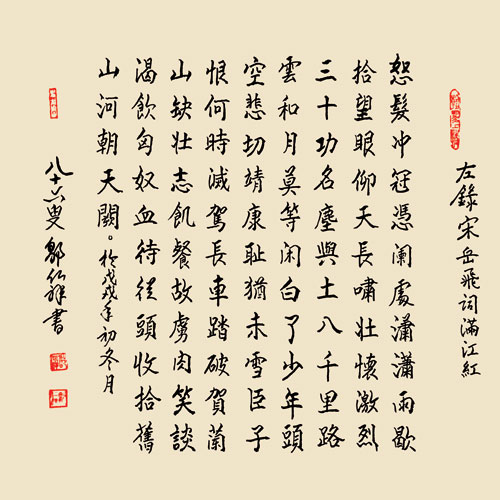 左錄宋岳飛詞滿江紅
怒髮冲冠憑阑處瀟瀟雨歇
拾望眼仰天長嘯壯懷激烈
三十功名塵與土八千里路
雲和月莫等闲白了少年頭
空悲切靖康耻猶未雪臣子
恨何時滅駕長車踏破賀蘭
山缺壯志飢餐故虜肉笑談
渴飲匈奴血待從頭收拾舊
山河朝天闕。於戊戌年初冬月
八十六叟祥書